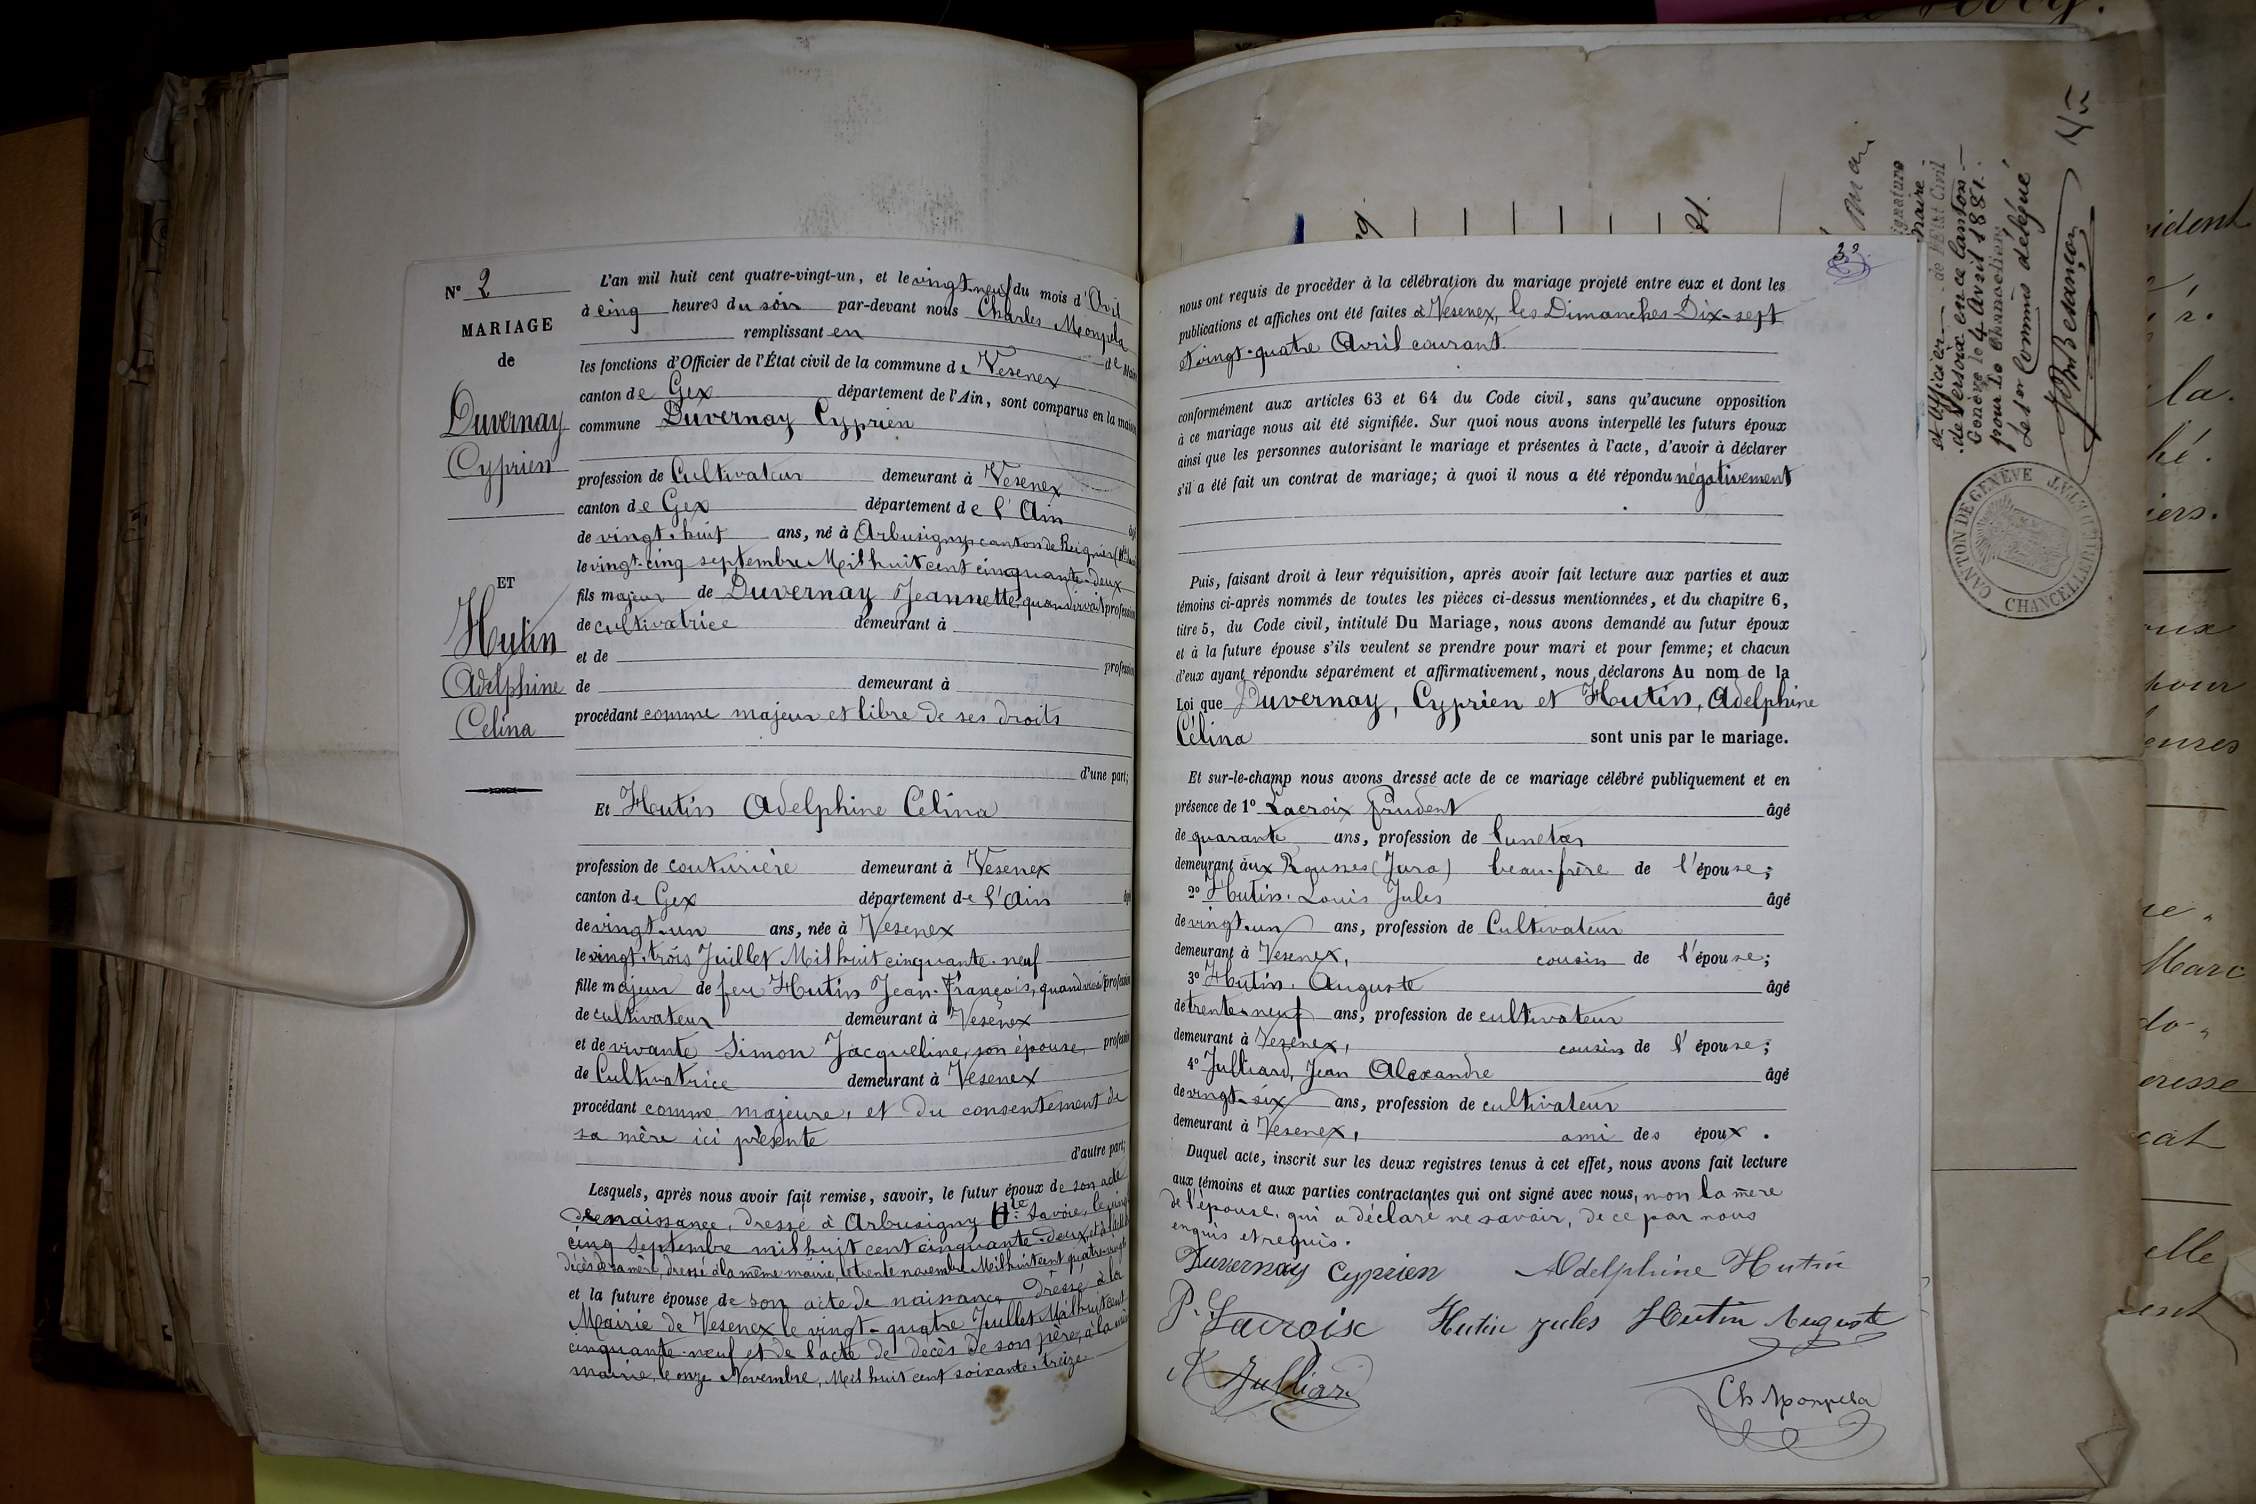 N° 2
MARIAGE
de
Duvernay
Cyprien
ET
Hutin
Adelphine
Célina
L'an mil huit cent quatre-vingt-un, et le vingt-neuf du mois d'Avril
à cinq heures du soir par-devant nous Charles Monpela
remplissant en
les fonctions d'Officier de l'État civil de la commune de Vesenex
canton de Gex département de l'Ain, sont comparus en la maison
commune Duvernay Cyprien
profession de Cultivateur demeurant à Vesenex
canton de Gex département de l'Ain
de vingt-huit ans, né à Arbusigny canton de Reignier
le vingt-cinq septembre Mil huit cent cinquante-deux
fils majeur de Duvernay Jeannette, quand vivait profession
de cultivatrice demeurant à
et de profession
de demeurant à
procédant comme majeur et libre de ses droits
d'une part;
Et Hutin Adelphine Célina
profession de couturière demeurant à Vesenex
canton de Gex département de l'Ain
de vingt-un ans, née à Vesenex
le vingt-trois Juillet Mil huit cinquante-neuf
fille majeur de feu Hutin Jean-François, quand vivait profession
de cultivateur demeurant à Vesenex
et de vivante Simon Jacqueline, son épouse, profession
de Cultivatrice demeurant à Vesenex
procédant comme majeure, et du consentement de
sa mère ici présente
d'autre part;
Lesquels, après nous avoir fait remise, savoir, le futur époux de son acte
de naissance, dressé à Arbusigny Hte Savoie, le vingt
cinq septembre mil huit cent cinquante-deux, et
décès de sa mère, dressé à la même mairie, le trente novembre Mil huit cent quatre-vingt
et la future épouse de son acte de naissance dressé à la
Mairie de Vesenex le vingt-quatre Juillet Mil huit cent
cinquante-neuf et de l'acte de décès de son père, à la même
mairie, le onze Novembre, Mil huit cent soixante-treize
nous ont requis de procéder à la célébration du mariage projeté entre eux et dont les
publications et affiches ont été faites à Vesenex, les Dimanches Dix-sept
et vingt-quatre Avril courant
conformément aux articles 63 et 64 du Code civil, sans qu'aucune opposition
à ce mariage nous ait été signifiée. Sur quoi nous avons interpellé les futurs époux
ainsi que les personnes autorisant le mariage et présentes à l'acte, d'avoir à déclarer
s'il a été fait un contrat de mariage; à quoi il nous a été répondu négativement
Puis, faisant droit à leur réquisition, après avoir fait lecture aux parties et aux
témoins ci-après nommés de toutes les pièces ci-dessus mentionnées, et du chapitre 6,
titre 5, du Code civil, intitulé Du Mariage, nous avons demandé au futur époux
et à la future épouse s'ils veulent se prendre pour mari et pour femme; et chacun
d'eux ayant répondu séparément et affirmativement, nous déclarons Au nom de la
Loi que Duvernay, Cyprien et Hutin, Adelphine
Célina sont unis par le mariage.
Et sur-le-champ nous avons dressé acte de ce mariage célébré publiquement et en
présence de 1° Lacroix Prudent âgé
de quarante ans, profession de lunetier
demeurant aux Rousses (Jura) beau-frère de l'épouse;
2° Hutin Louis Jules âgé
de vingt-un ans, profession de Cultivateur
demeurant à Vesenex, cousin de l'épouse;
3° Hutin Auguste âgé
de trente-neuf ans, profession de cultivateur
demeurant à Vesenex, cousin de l'épouse;
4° Julliard, Jean Alexandre âgé
de vingt-six ans, profession de cultivateur
demeurant à Vesenex, ami des époux.
Duquel acte, inscrit sur les deux registres tenus à cet effet, nous avons fait lecture
aux témoins et aux parties contractantes qui ont signé avec nous, non la mère
de l'épouse, qui a déclaré ne savoir, de ce par nous
enquis et requis.
Duvernay Cyprien Adelphine Hutin
P. Lacroix Hutin jules Hutin Auguste
A Julliard
Ch Monpela
maire
et Officier de l'État Civil
Genève le 4 Avril 1881.
pour le Chancelier:
Le 1er Commis délégué
CANTON DE GENÈVE
CHANCELLERIE